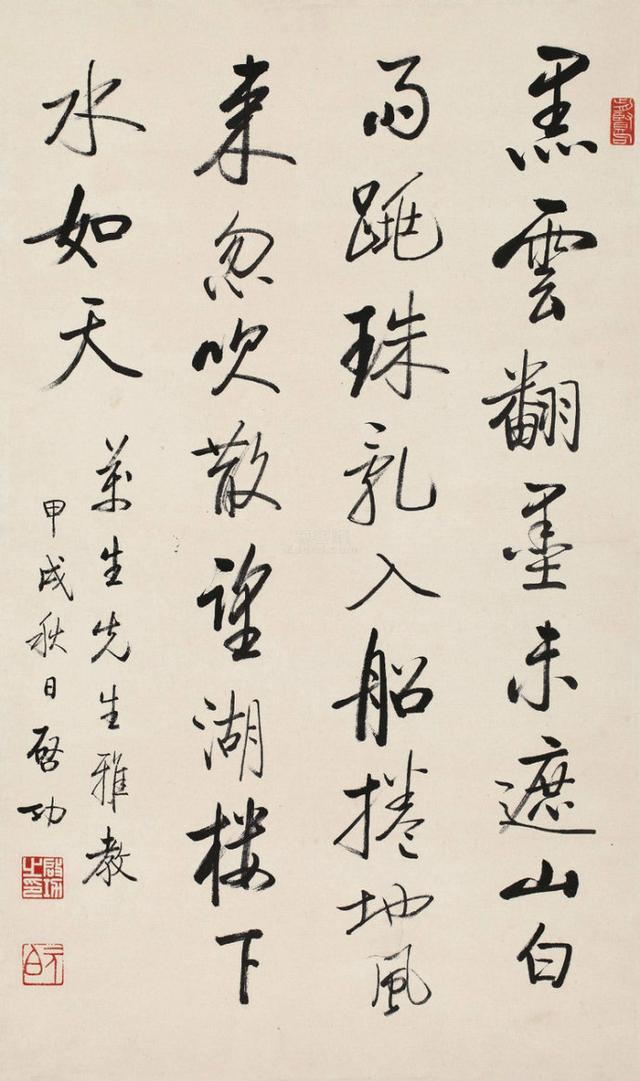 黑雲翻墨未遮山白
雨跳珠乱入船捲地風
来忽吹散望湖楼下
水如天
萬生先生雅教
甲戌秋日启功
启功之印
元白